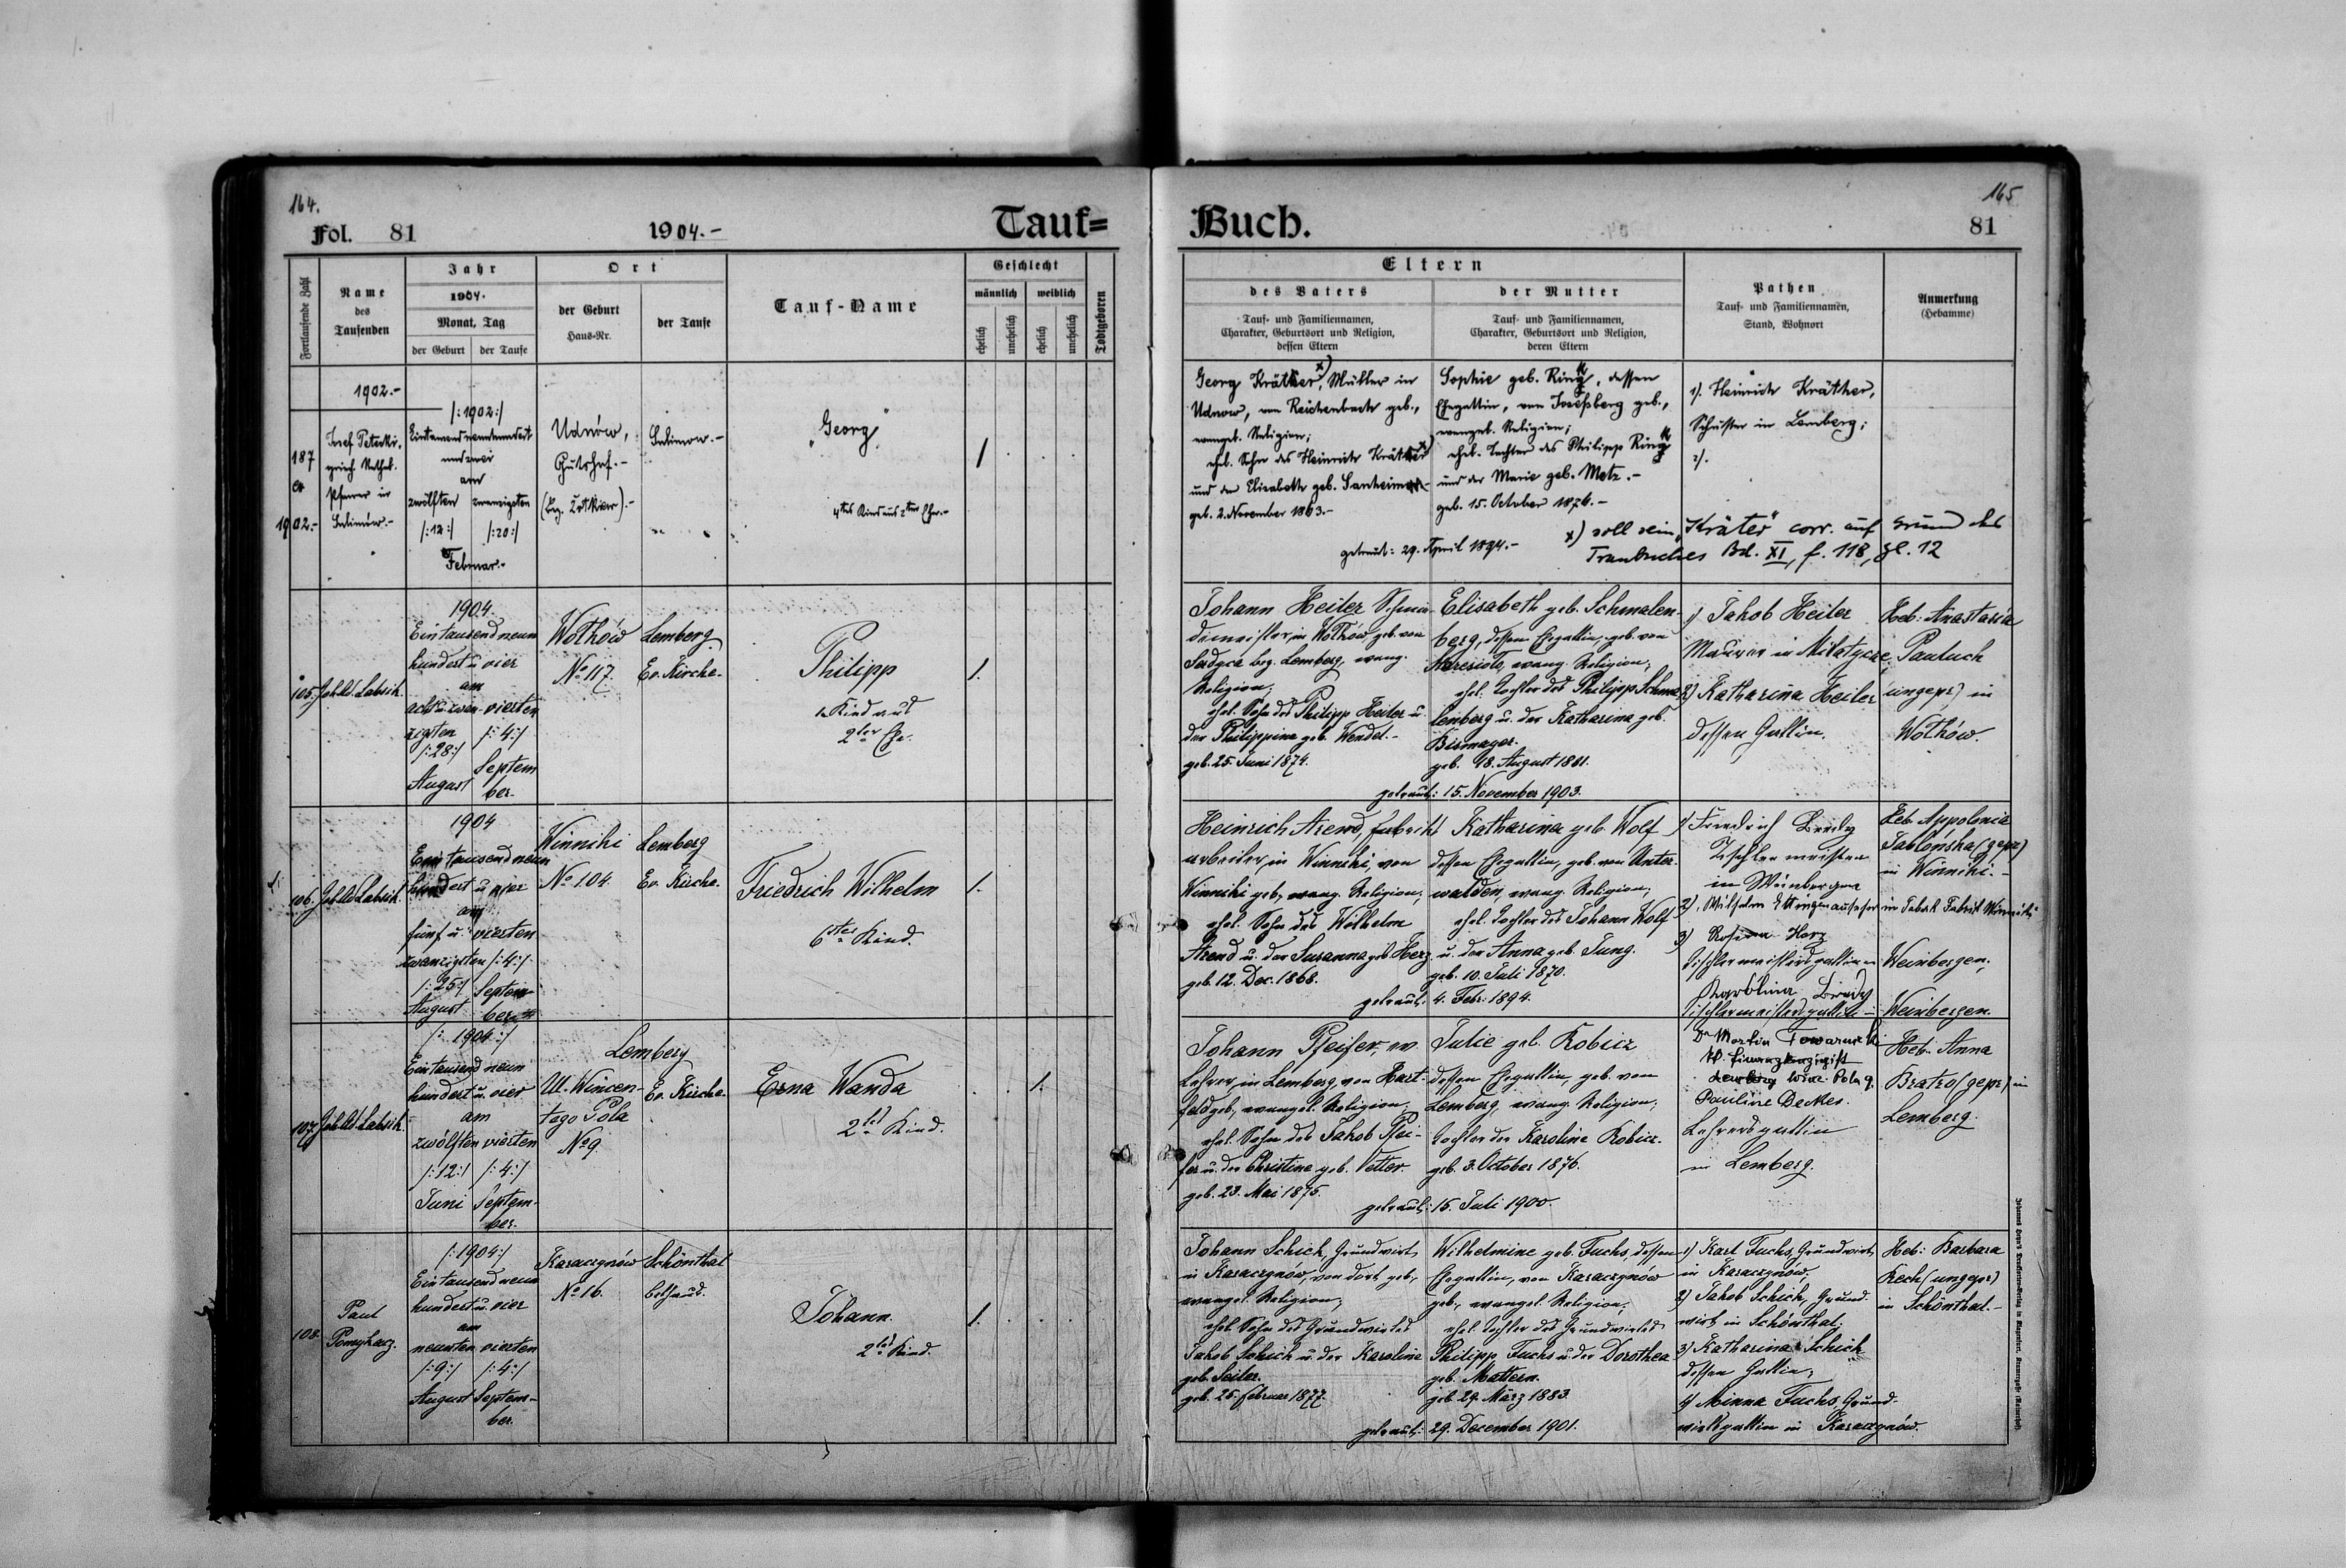 164.
Fol. 81
1904.-
Tauf=
Fortlaufende Zahl
Name
des
Taufenden
Jahr
1904.
Monat, Tag
der Geburt
der Taufe
Ort
der Geburt
Haus-Nr.
der Taufe
Tauf-Name
Geschlecht
männlich
weiblich
ehelich
unehelich
ehelich
unehelich
Todtgeboren
1902.-
187
1902.-
Josef
griech. Kathol.
Pfarrer in
/:1902:/
Eintausendneunhundert
undzwei
am
zwölften zwanzigsten
/:12:/ /:20:/
Februar.-
Udnów,
Gutshof.-
"Georg"
1
4tes Kind aus 2ter Ehe.-
105.
Joh. Ud. Labsik.
1904.
Eintausend neun
hundert u. vier
am
acht u. zwan- vierten
zigsten /:4:/
/:28:/
August
Septem
ber.
Wolków
No 117.
Lemberg
Ev. Kirche.
Philipp
1. Kind aus
2ter Ehe.
1.
106.
Joh. Ud. Labsik.
1904
Eintausend neun
hundert u. vier
am
fünf u. vierten
zwanzigsten /:4:/
/:25:/ Septem-
August ber.
Winniki
No 104.
Lemberg
Ev. Kirche.
Friedrich Wilhelm
6tes Kind.
1.
107.
Joh. Ud. Labsik.
/:1904:/
Eintausend neun
hundert u. vier
am
zwölften vierten
/:12:/ /:4:/
Juni Septem-
ber.
Lemberg
Ul. Wincen-
tego Pola
No 9.
Ev. Kirche.
Erna Wanda
2tes Kind.
1.
108.
Paul
Pomykacz.
/:1904:/
Eintausend neun
hundert u. vier
am
neunten vierten
/:9:/ /:4:/
August Septem-
ber.
Karaczynów
No 16.
Schönthal
Bethaus.
Johann.
2tes Kind.
1.
165
Buch.
81
Eltern
des Vaters
Tauf- und Familiennamen,
Charakter, Geburtsort und Religion,
dessen Eltern
der Mutter
Tauf- und Familiennamen,
Charakter, Geburtsort und Religion,
deren Eltern
Pathen
Tauf- und Familiennamen,
Stand, Wohnort
Anmerkung
(Hebamme)
Georg Kräther x), Müller in
Udnow, von Reichenbach geb.,
evangel. Religion;
ehel. Sohn des Heinrich Kräther x)
und der Elisabeth geb. Sanheimer
geb. 2. November 1863.-
Sophie geb. Ring, dessen
Ehegattin, von Josefsberg geb.,
evangel. Religion;
ehel. Tochter des Philipp Ring
und der Marie geb. Metz.-
geb. 15. October 1876.-
getraut: 29. April 1894.-
1). Heinrich Kräther,
Schuster in Lemberg;
2).
x) soll sein "Kräter" corr. auf Grund des
Traubuches Bd. XI, f. 118, Zl. 12
Johann Heiler Schmie-
demeister, in Wolków, geb. von
Serdyca bez. Lemberg, evang.
Religion;
ehel. Sohn des Philipp Heiler u.
der Philippine geb. Wendel.-
geb. 25. Juni 1874.
Elisabeth geb. Schmalen-
berg, dessen Ehegattin, geb. von
evang. Religion;
ehel. Tochter des Philipp Schma-
lenberg u. der Katharina geb.
Bismayer.
geb. 18. August 1881.
getraut: 15. November 1903.
1) Jakob Heiler
Maurer in Milatycze,
2) Katharina Heiler
dessen Gattin.
Heb: Anastasia
Pauluch
(ungepr.) in
Wolków.
Heinrich Arend, Fabriks-
arbeiter, in Winniki, von
Winniki geb., evang. Religion;
ehel. Sohn des Wilhelm
Arend u. der Susanna geb. Herz.
geb. 12. Dec. 1868.
Katharina geb. Wolf
dessen Ehegattin, geb. von Unter-
walden, evang. Religion;
ehel. Tochter des Johann Wolf
u. der Anna geb. Jung.
geb. 10. Juli 1870.
getraut: 4. Febr. 1894.
1) Friedrich Bredy
Tischlermeister
in Weinbergen
2) Wilhelm
in Tabak Fabrik Winniki
3) Rosina Herz
Tischlermeistersgattin in
Weinbergen;
Karolina Bredy
Tischlermeistersgattin in
Weinbergen.
Heb. Appolonia
Jablońska (gepr.)
in Winniki.-
Johann Pfeifer, ev.
Lehrer in Lemberg, von Hart-
feld geb., evangel. Religion,
ehel. Sohn des Jakob Pfei-
fer u. der Christine geb. Vetter.
geb. 23. Mai 1875.
Julie geb. Kobicz
dessen Ehegattin, geb. von
Lemberg, evang. Religion;
Tochter der Karoline Kobicz.
geb. 3. October 1876.
getraut: 15. Juli 1900.
Dr Martin
Lemberg Winc. Pola 9.
Pauline Decker.
Lehrersgattin
in Lemberg.
Heb. Anna
Bratro (gepr.) in
Lemberg.
Johann Schick, Grundwirt
in Karaczynów, von dort geb.,
evangel. Religion;
ehel. Sohn des Grundwirtes
Jakob Schick u. der Karoline
geb. Seiler.
geb. 25. Februar 1877.
Wilhelmine geb. Fuchs, dessen
Ehegattin, von Karaczynów
geb., evangel. Religion;
ehel. Tochter des Grundwirtes
Philipp Fuchs u. der Dorothea
geb. Mattern.
geb. 29. März 1883.
getraut: 29. December 1901.
1) Karl Fuchs, Grundwirt
in Karaczynów,
2) Jakob Schick, Grund-
wirt in Schönthal;
3) Katharina Schick
dessen Gattin;
4) Minna Fuchs, Grund-
wirtsgattin in Karaczynów.
Heb: Barbara
Rech (ungepr.)
in Schönthal.-